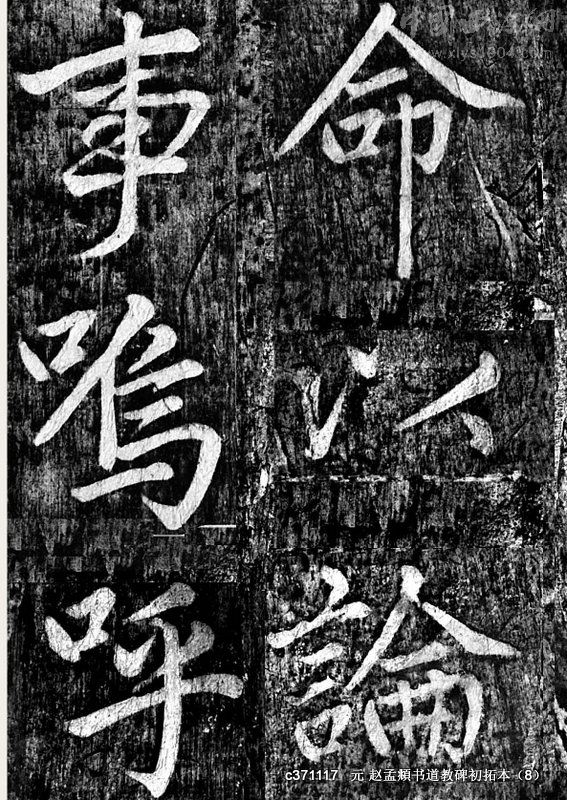 命以論
事嗚呼
c371117 元 赵孟頫书道教碑初拓本（8）